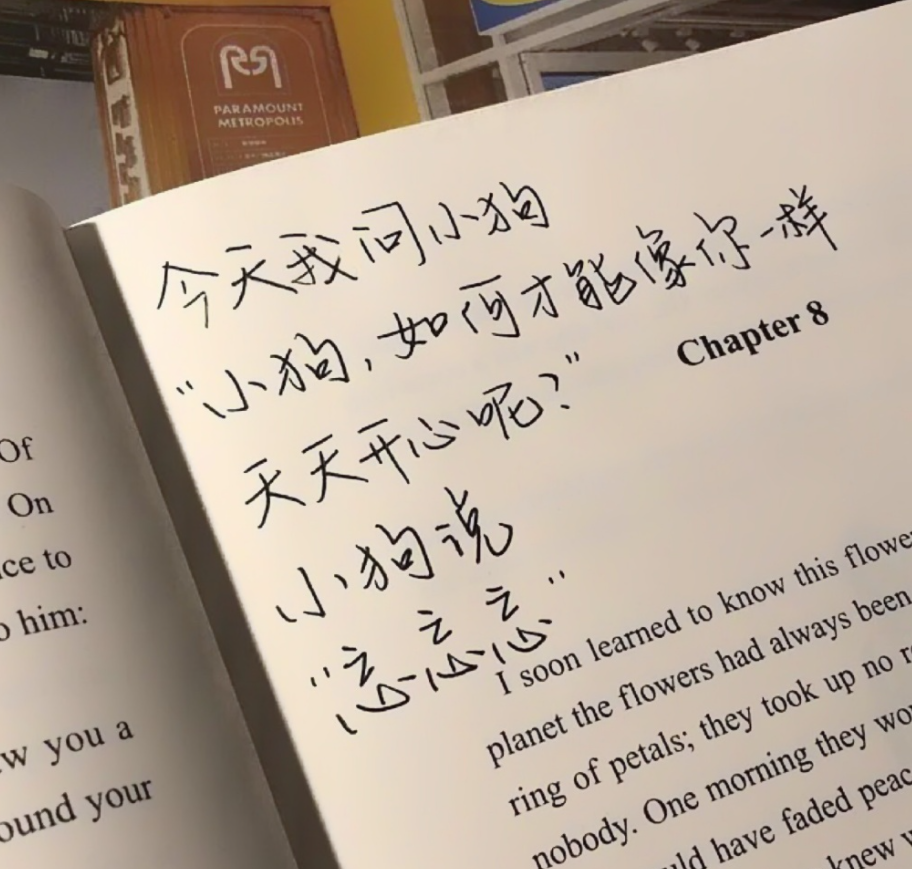 PARAMOUNT
METROPOLIS
今天我问小狗
“小狗,如何才能像你一样
天天开心呢?”
小狗说
“忘忘忘”
Chapter 8
Of
On
ce to
him:
w you a
ound your
I soon learned to know this flowe
planet the flowers had always been
ring of petals; they took up no
nobody. One morning they wo
uld have faded peac
knew